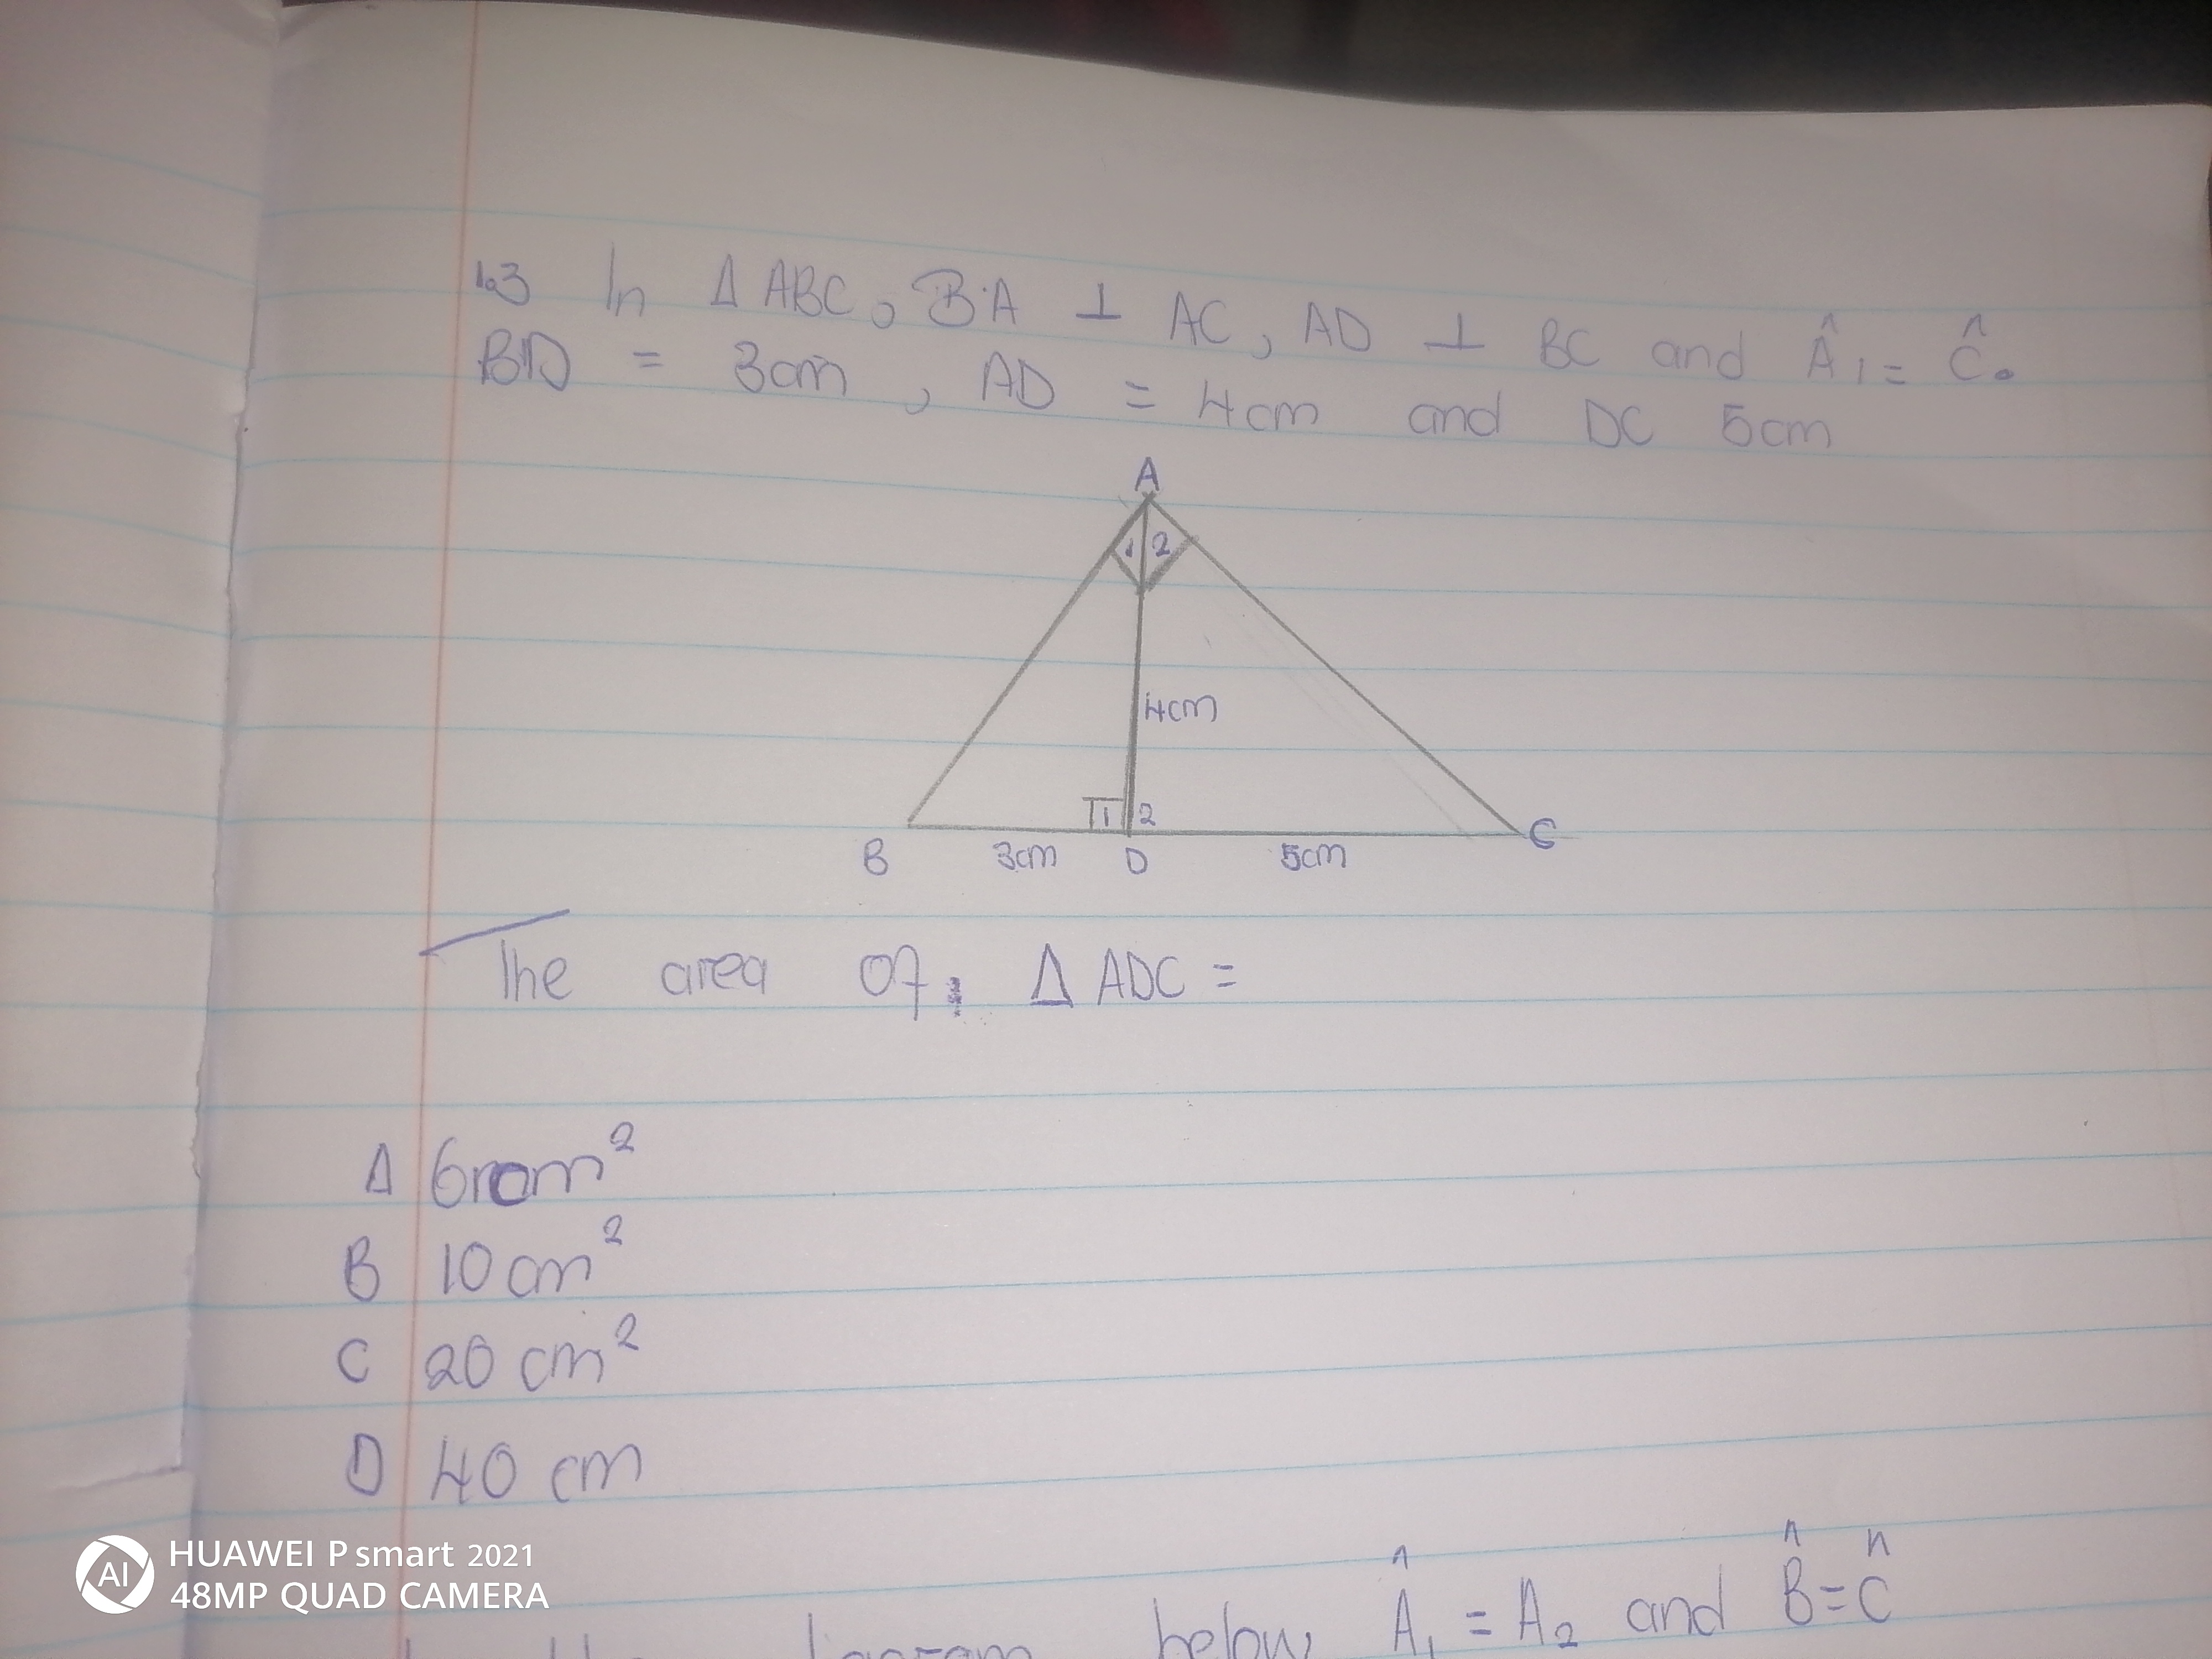 1.3 In Δ ABC, BA ⊥ AC, AD ⊥ BC and Â1 = Ĉ.
BD = 3cm, AD = 4cm and DC 5cm
A
1 2
4cm
1 2
B 3cm D 5cm C
The area of Δ ADC =
A 6cm²
B 10 cm²
C 20 cm²
D 40 cm
HUAWEI P smart 2021
AI
48MP QUAD CAMERA
below Â1 = A2 and B̂ = Ĉ